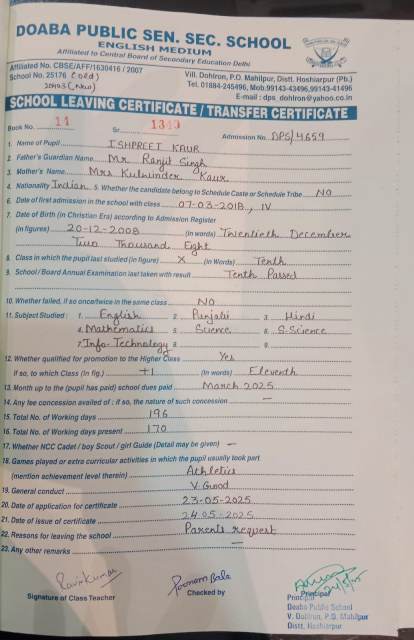 DOABA PUBLIC SEN. SEC. SCHOOL
ENGLISH MEDIUM
Affiliated to Central Board of Secondary Education Delhi
Affiliated No. CBSE/AFF/1630416 / 2007
School No. 25176 (old)
(New)
Vill. Dohlron, P.O. Mahilpur, Distt. Hoshiarpur (Pb.)
Tel. 01884-245496, Mob.99143-43496,99143-41496
E-mail : dps_dohlron@yahoo.co.in
SCHOOL LEAVING CERTIFICATE / TRANSFER CERTIFICATE
Book No. 14 Sr. 1340 Admission No. DPS/4659
1. Name of Pupil ISHPREET KAUR
2. Father's Guardian Name Mr Ranjit Singh
3. Mother's Name Mrs Kulwinder Kaur
4. Nationality Indian 5. Whether the candidate belong to Schedule Caste or Schedule Tribe NO
6. Date of first admission in the school with class 07-03-2018, IV
7. Date of Birth (in Christian Era) according to Admission Register
(in figures) 20-12-2008 (in words) Twentieth December
Two Thousand Eight
8. Class in which the pupil last studied (in figure) X (in Words) Tenth
9. School / Board Annual Examination last taken with result Tenth Passed
10. Whether failed, if so once/twice in the same class NO
11. Subject Studied : 1. English 2. Punjabi 3. Hindi
4. Mathematics 5. Science 6. S.Science
7. Info. Technology 8. 9.
12. Whether qualified for promotion to the Higher Class Yes
if so, to which Class (in fig.) +1 (in words) Eleventh
13. Month up to the (pupil has paid) school dues paid March 2025
14. Any fee concession availed of : if so, the nature of such concession —
15. Total No. of Working days 196
16. Total No. of Working days present 170
17. Whether NCC Cadet / boy Scout / girl Guide (Detail may be given) —
18. Games played or extra curricular activities in which the pupil usually took part
(mention achievement level therein) Athletics
19. General conduct V. Good
20. Date of application for certificate 23-05-2025
21. Date of issue of certificate 24.05.2025
22. Reasons for leaving the school Parents request
23. Any other remarks —
Ravi Kumar
Signature of Class Teacher
Poonam Bala
Checked by
Principal
Principal
Doaba Public School
V. Dohlron, P.O. Mahilpur
Distt. Hoshiarpur